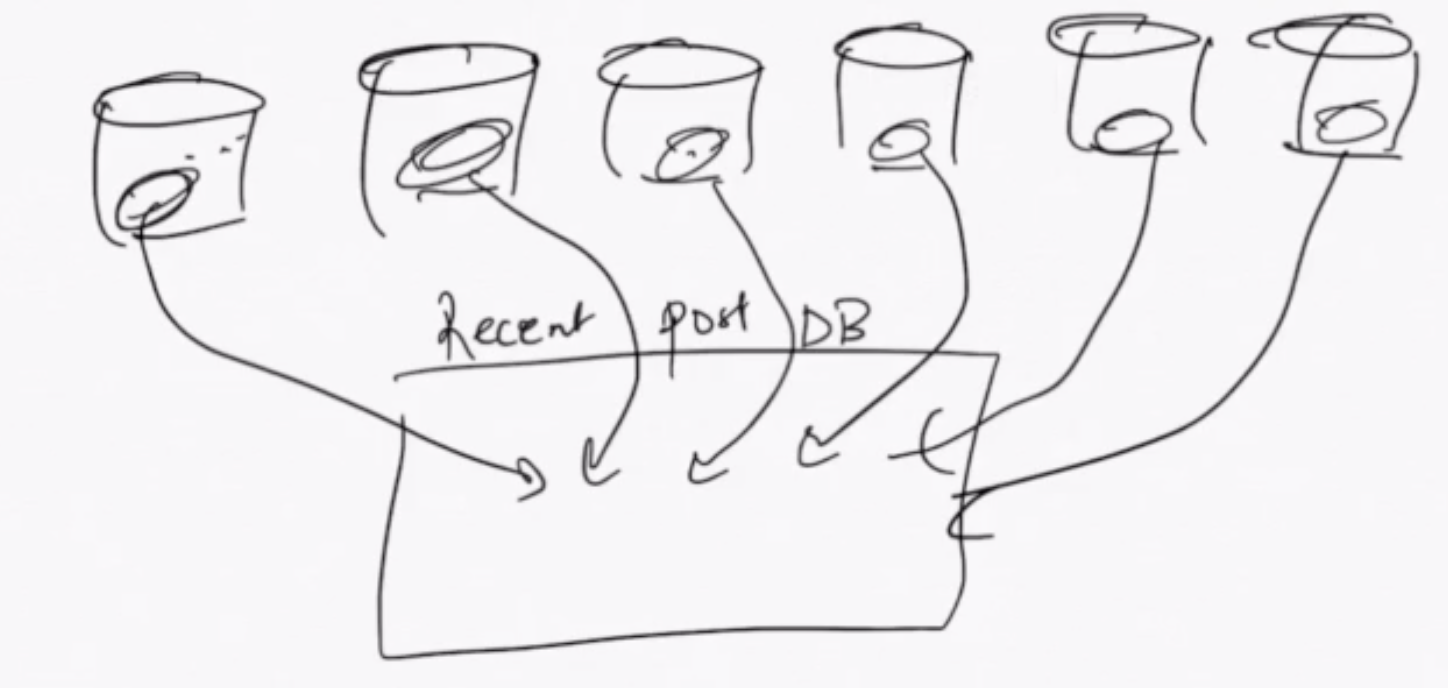 Recent Post DB